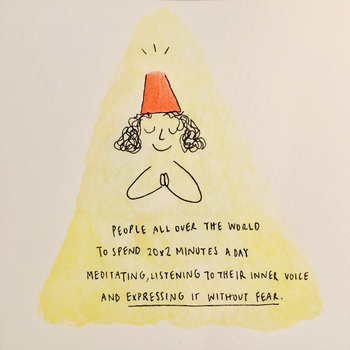 PEOPLE ALL OVER THE WORLD
TO SPEND 20x2 MINUTES A DAY
MEDITATING, LISTENING TO THEIR INNER VOICE
AND EXPRESSING IT WITHOUT FEAR.